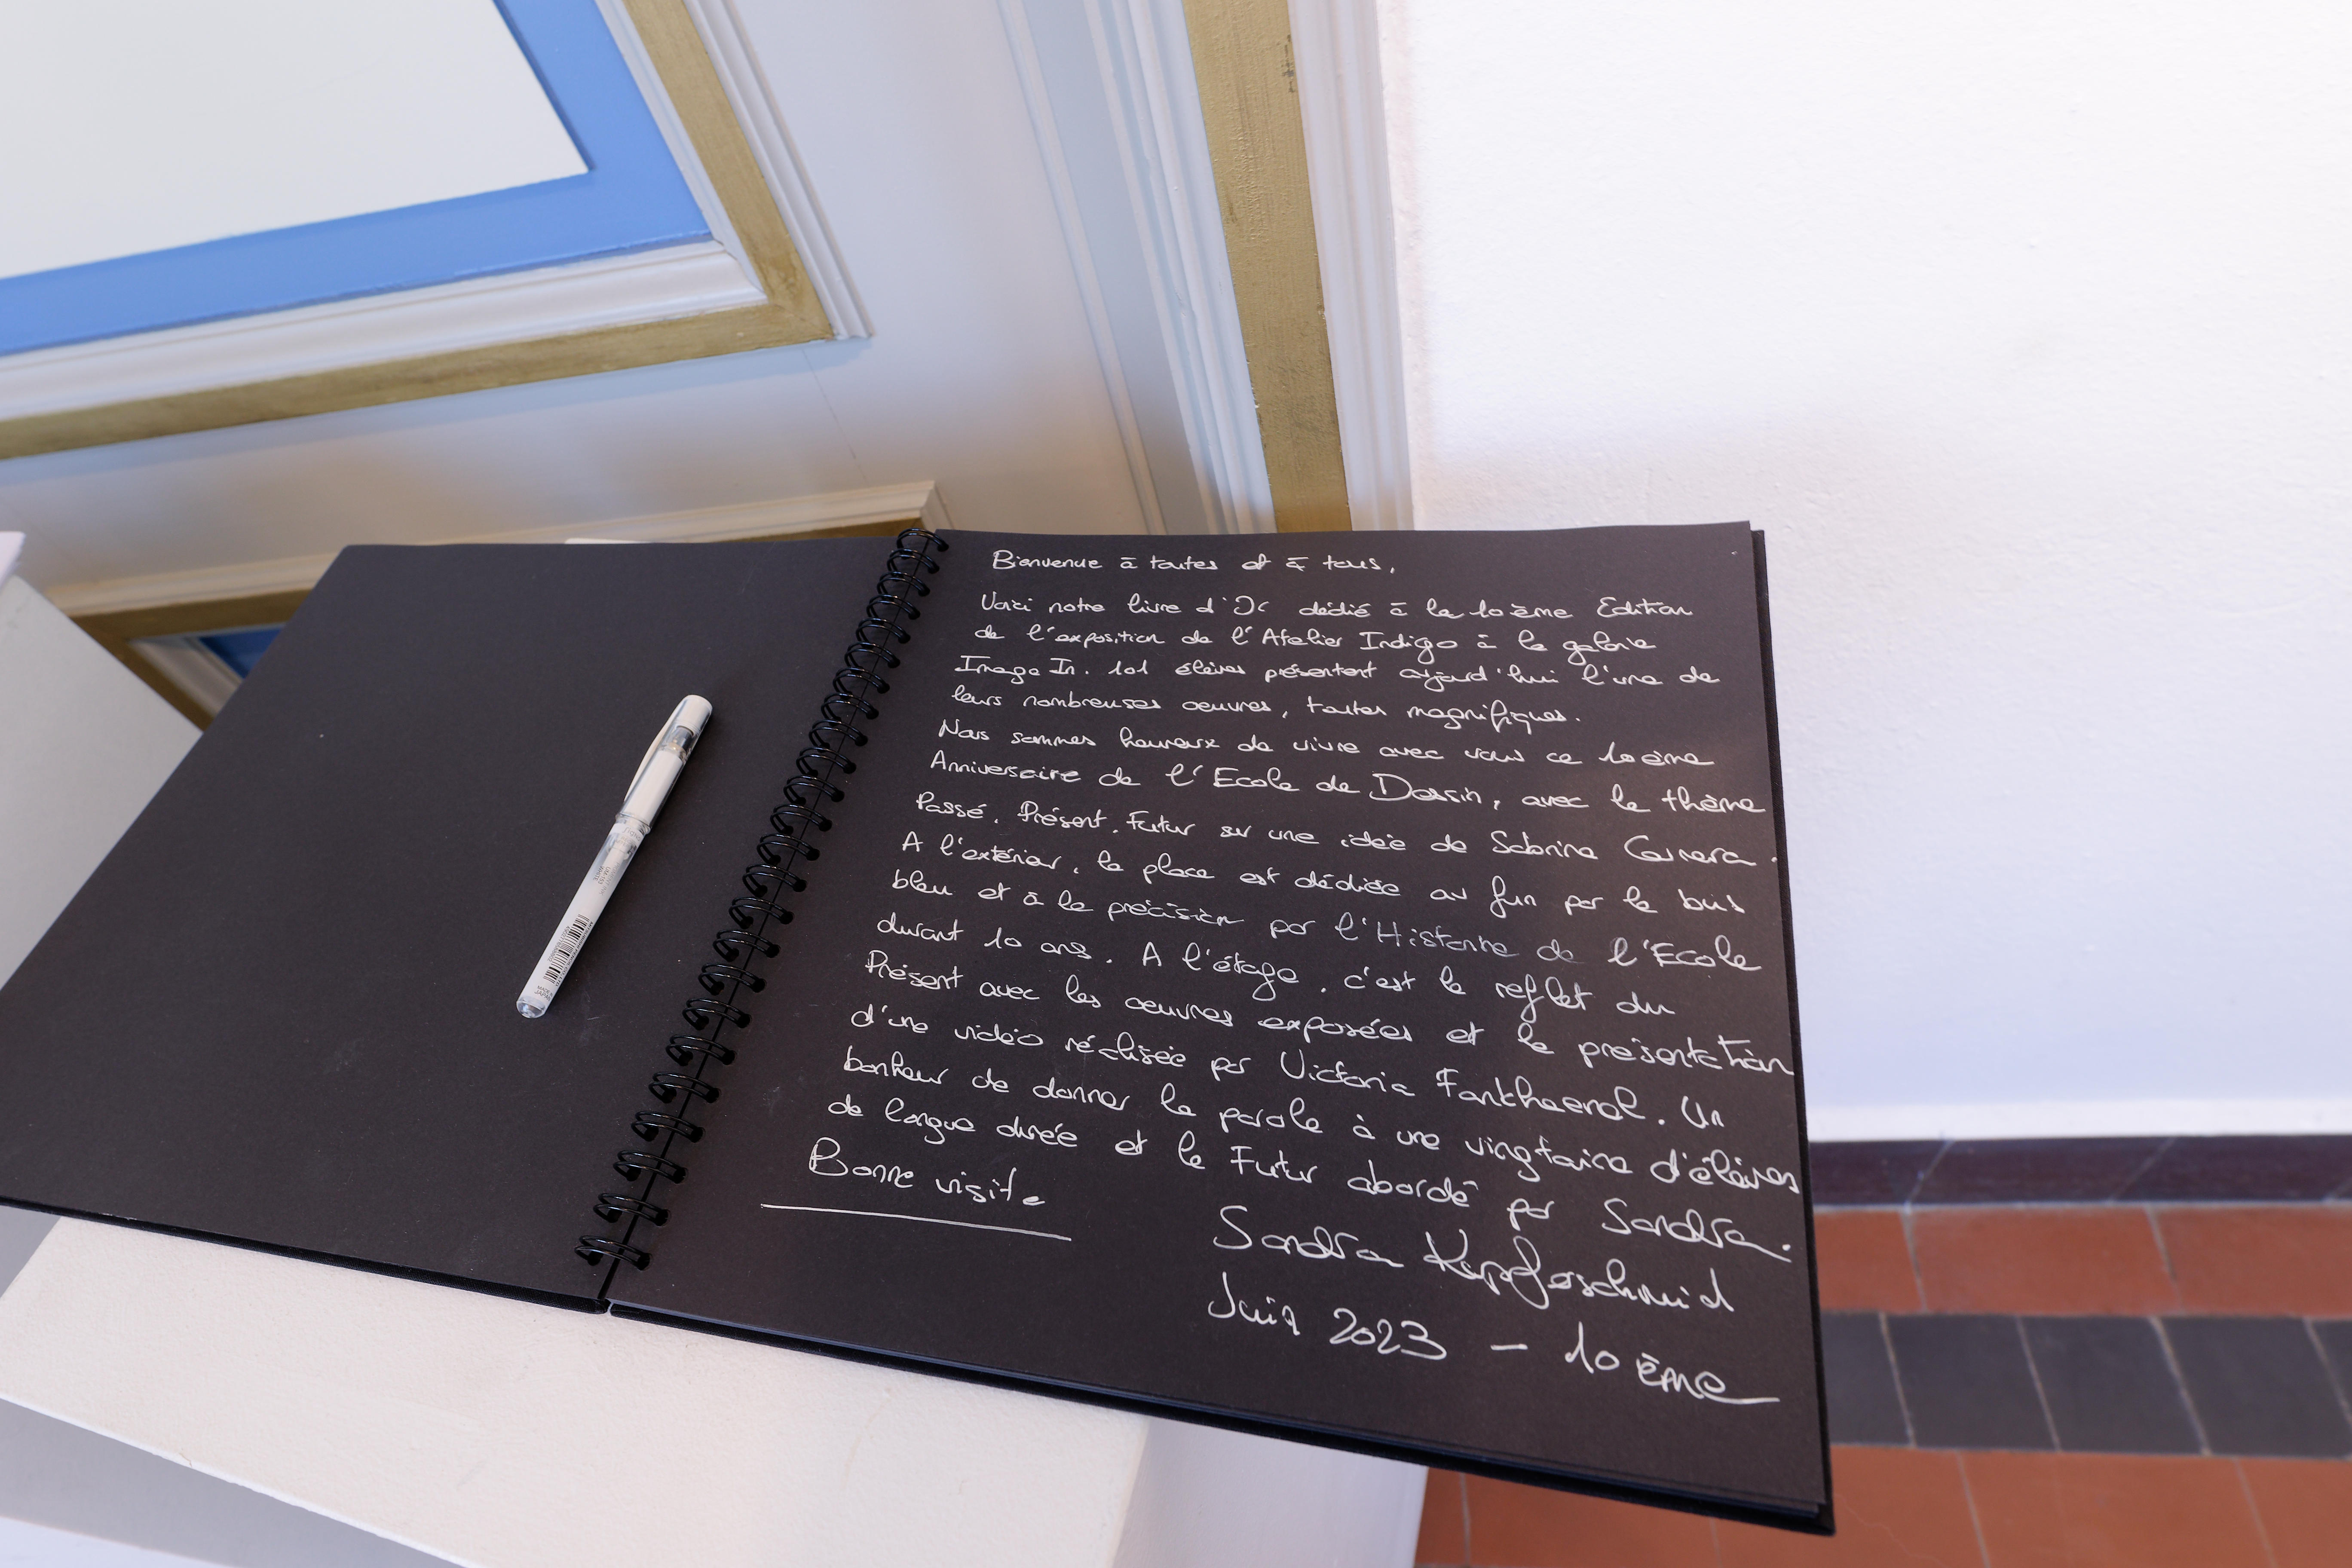 Bienvenue à toutes et à tous,
Voici notre livre d'Or dédié à la 10ème Edition
de l'exposition de l'Atelier Indigo à la galerie
Image In. 101 élèves présentent aujourd'hui l'une de
leurs nombreuses oeuvres, toutes magnifiques.
Nous sommes heureux de vivre avec vous ce 10ème
Anniversaire de l'Ecole de Dessin, avec le thème
Passé. Présent. Futur sur une idée de Sabrina
A l'extérieur, la place est dédiée au fun par le bus
bleu et à la précision par l'Histoire de l'Ecole
durant 10 ans. A l'étage, c'est le reflet du
Présent avec les oeuvres exposées et la présentation
d'une vidéo réalisée par Victoria Fankhaenel. Un
bonheur de donner la parole à une vingtaine d'élèves
de longue durée et le Futur abordé par Sandra.
Bonne visite
Sandra Kapferschmid
Juin 2023 - 10ème
MADE IN
JAPAN